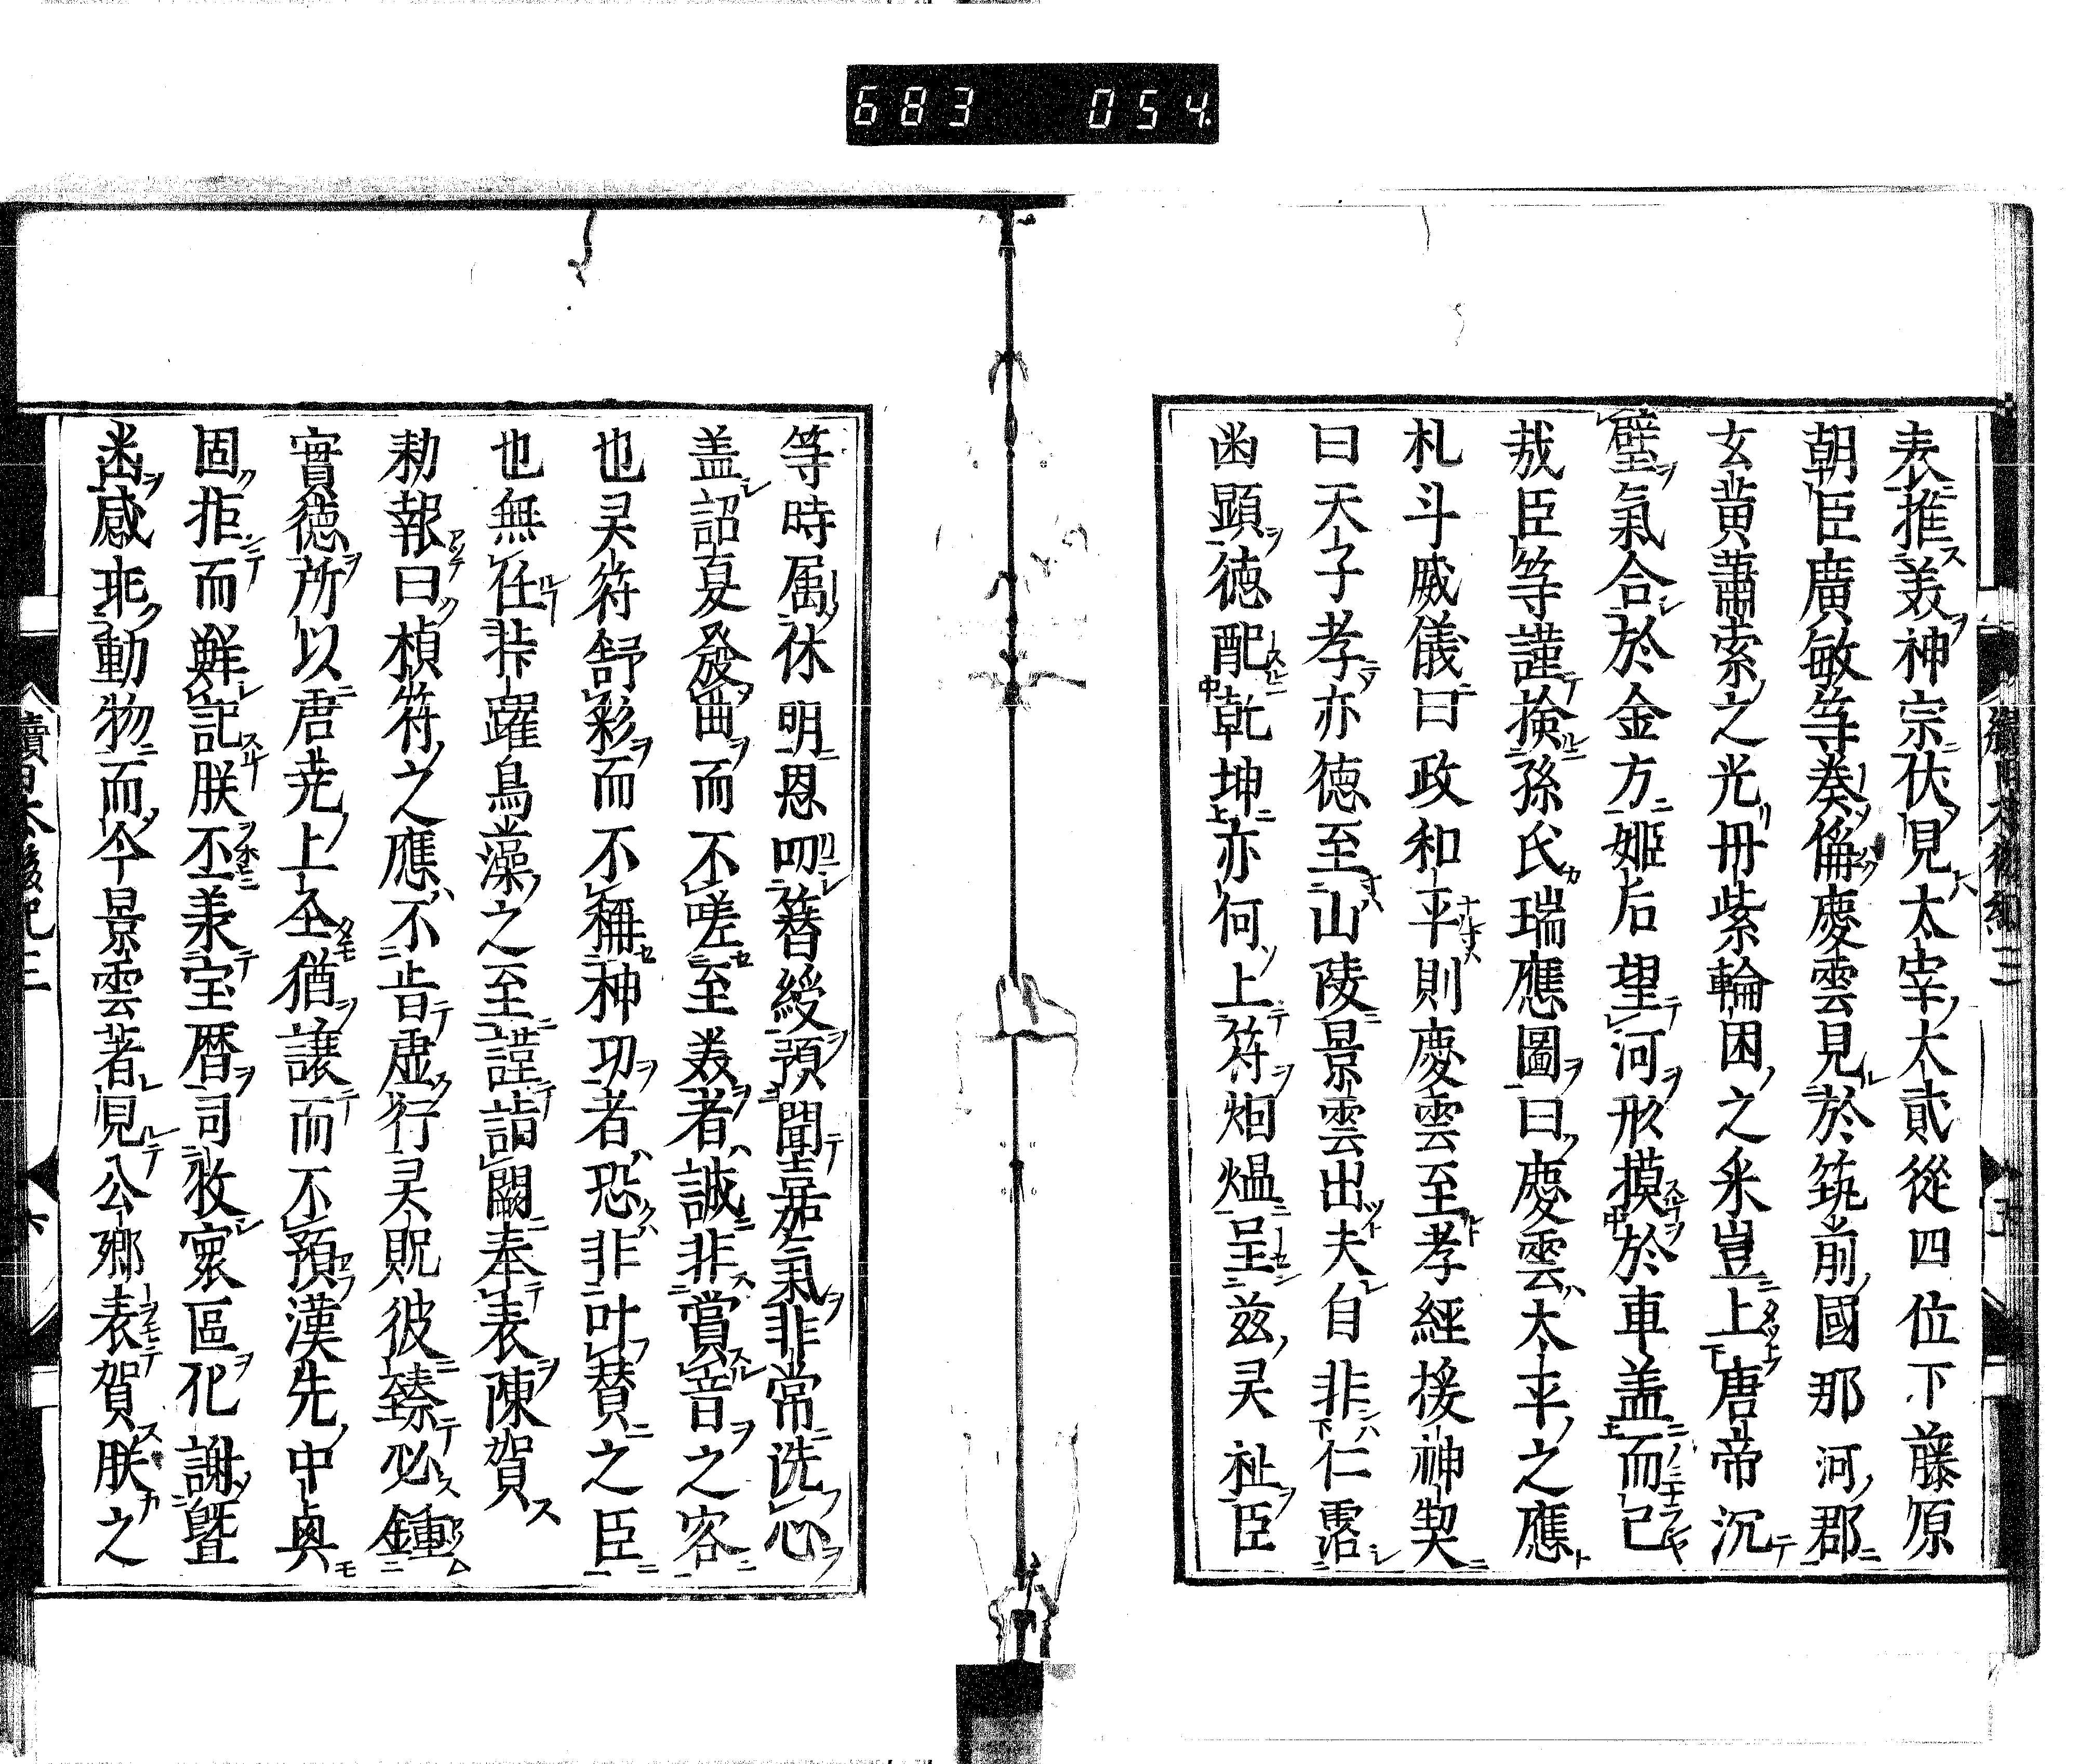 683 054.
表推美神宗伏見太宰太貳從四位下藤原
朝臣廣敏等奏偁慶雲見於筑前國那河郡
玄黄蕭索之光丹紫輪囷之釆豈上唐帝沉
璧氣合於金方姫后望河形摸於車盖而已
哉臣等謹檢孫氏瑞應圖曰慶雲太平之應
札斗威儀曰政和平則慶雲至孝經援神契
曰天子孝亦徳至山陵景雲出夫自非仁霑
凾顕徳配乾坤亦何上符烟熅呈兹㚑祉臣
等時属休明恩叨簪綬預聞嘉氣非常洗心
盖詔夏發曲而不嗟至美者誠非賞音之客
也㚑符舒彩而不稱神功者恐非叶賛之臣
也無任抃躍鳥藻之至謹詣闕奉表陳賀
勅報曰楨符之應不肯虚行㚑貺彼臻必鍾
實徳所以君尭上圣猶譲而不預漢先中興
固拒而鮮記朕丕承宝暦司牧寰區化謝曁
幽感乖動物而今景雲著見公卿表賀朕之
續日本後紀三